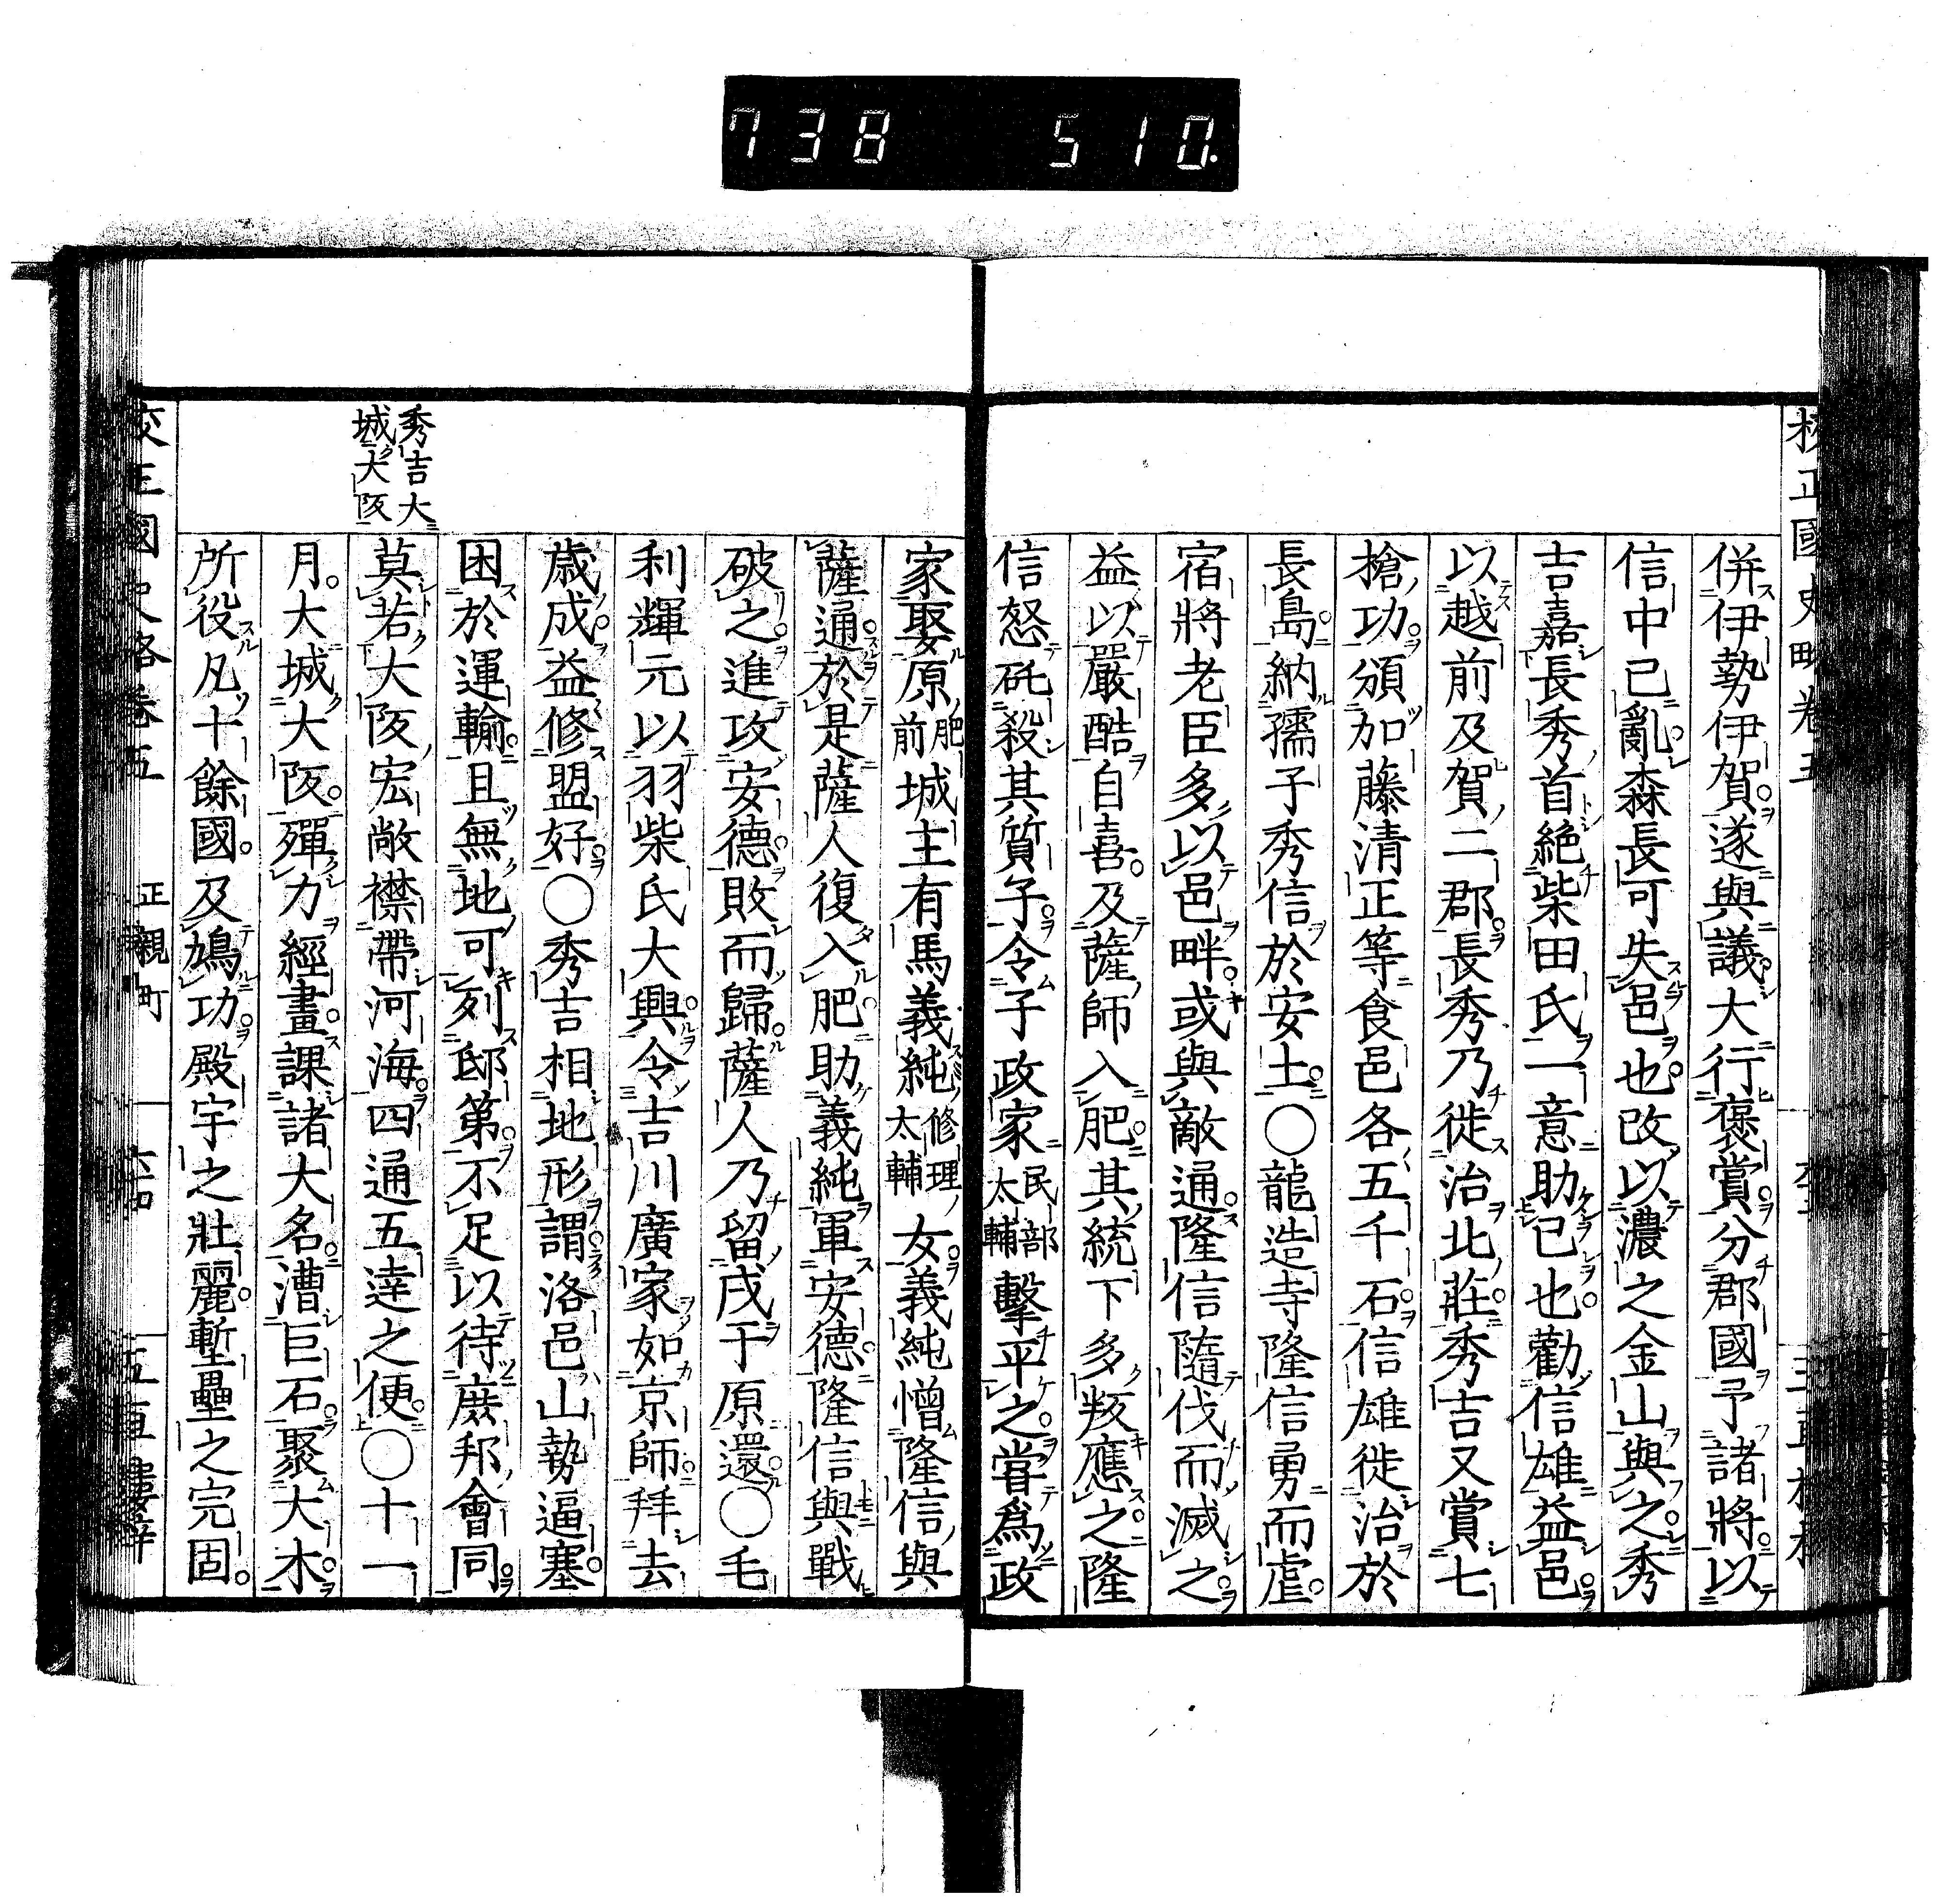 738 510.
校正國史略卷五
併伊勢伊賀遂與議大行褒賞分郡國予諸將以
信中己亂森長可失邑也改以濃之金山與之秀
吉嘉長秀首絶柴田氏一意助己也勸信雄益邑
以越前及賀二郡長秀乃徙治北莊秀吉又賞七
搶功頒加藤清正等食邑各五千石信雄徙治於
長島納孺子秀信於安土○龍造寺隆信勇而虐
宿將老臣多以邑畔或與敵通隆信隨伐而滅之
益以嚴酷自喜及薩師入肥其統下多叛應之隆
信怒矺殺其質子令子政家民部太輔擊平之嘗爲政
家娶原肥前城主有馬義純修理太輔女義純憎隆信與
薩通於是薩人復入肥助義純軍安德隆信與戰
破之進攻安德敗而歸薩人乃留戌于原還○毛
利輝元以羽柴氏大興令吉川廣家如京師拜去
歲成益修盟好○秀吉相地形謂洛邑山勢逼塞
困於運輸且無地可列邸第不足以待庶邦會同
秀吉大
城大阪
莫若大阪宏敞襟帶河海四通五達之便○十一
月大城大阪殫力經畫課諸大名漕巨石聚大木
所役凡十餘國及鳩功殿宇之壯麗塹壘之完固
校正國史略卷五 正親町